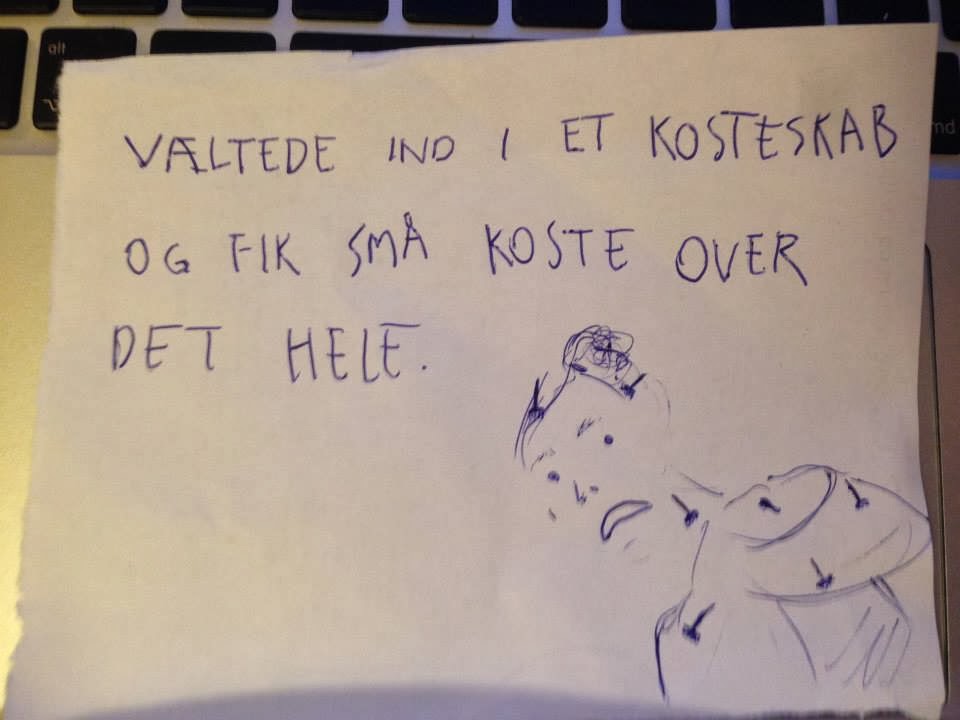 alt
VÆLTEDE IND I ET KOSTESKAB
OG FIK SMÅ KOSTE OVER
DET HELE.